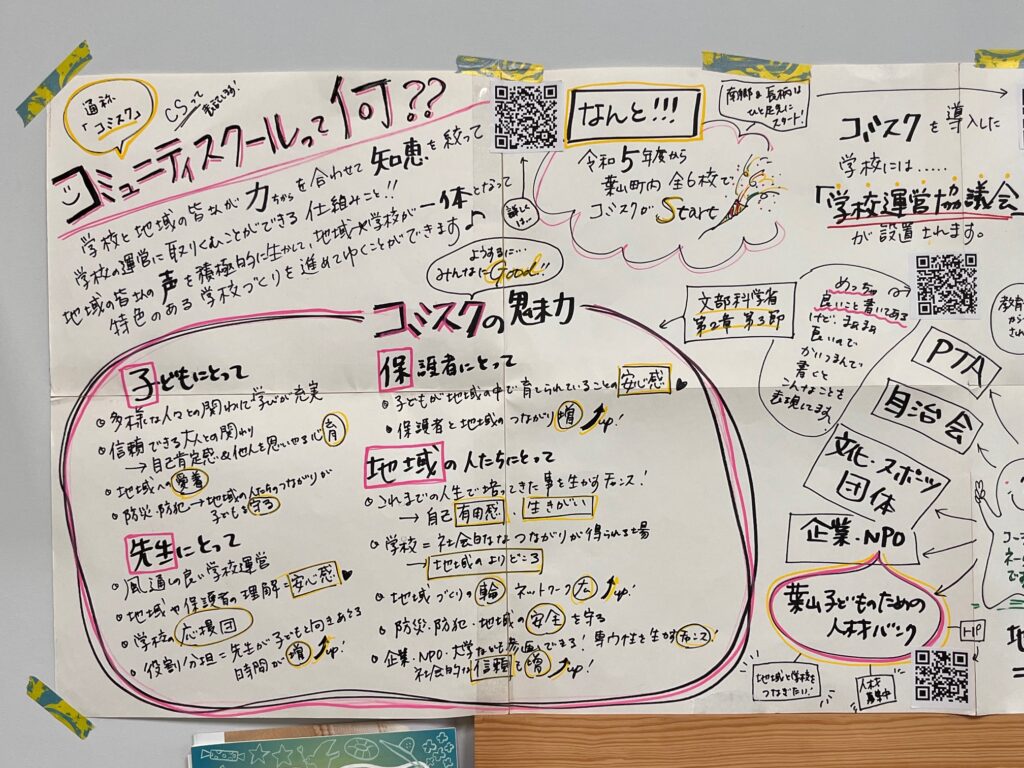 通称
「コミスク」
CSって
コミュニティスクールって何??
学校と地域の皆なが力ちからを合わせて知恵を絞って
学校の運営に取りくむことができる仕組みこと!!
地域の皆なの声を積極的に生かして、地域が学校が一体となって
特色のある学校づくりを進めてゆくことができます♪
詳しくは
なんと!!!
南郷&長柄は
ひと足先に
スタート!
令和5年度から
葉山町内全6校で
コミスクがStart
ようするに…
みんなにGood!!
コミスクを導入した
学校には……
「学校運営協議会
が設置されます。
文部科学省
第2章 第3節
めっちゃ
良いこと書いてある
けど、まぁまぁ
長いので
かいつまんで
書くと
こんなことを
表現してます。
コミスクの魅力
子どもにとって
多様な人々との関わりで学びが充実
信頼できる大人との関わり
→自己肯定感&他人を思いやる心育
地域への愛着
防災・防犯→地域の人たちのつながりが
子どもを守る
先生にとって
風通しの良い学校運営
地域や保護者の理解=安心感♥
学校の応援団
役割分担=先生が子どもと向きあえる
時間が増up!
保護者にとって
子どもが地域の中で育てられていることの安心感♥
保護者と地域のつながり増up!
地域の人たちにとって
これまでの人生で培ってきた事を生かすチャンス!
→自己有用感、生きがい
学校=社会的なつながりが得られる場
→地域のよりどころ
地域づくりの輪 ネットワーク大up!
防災・防犯・地域の安全を守る
企業・NPO・大学なども参画できる!専門性を生かすチャンス!
社会的な信頼も増up!
PTA
自治会
文化・スポーツ
団体
企業・NPO
葉山子どものための
人材バンク
HP
地域と学校を
つなぎたい!
人材
募集中
教育
から
され
コー
ネー
で
地
=